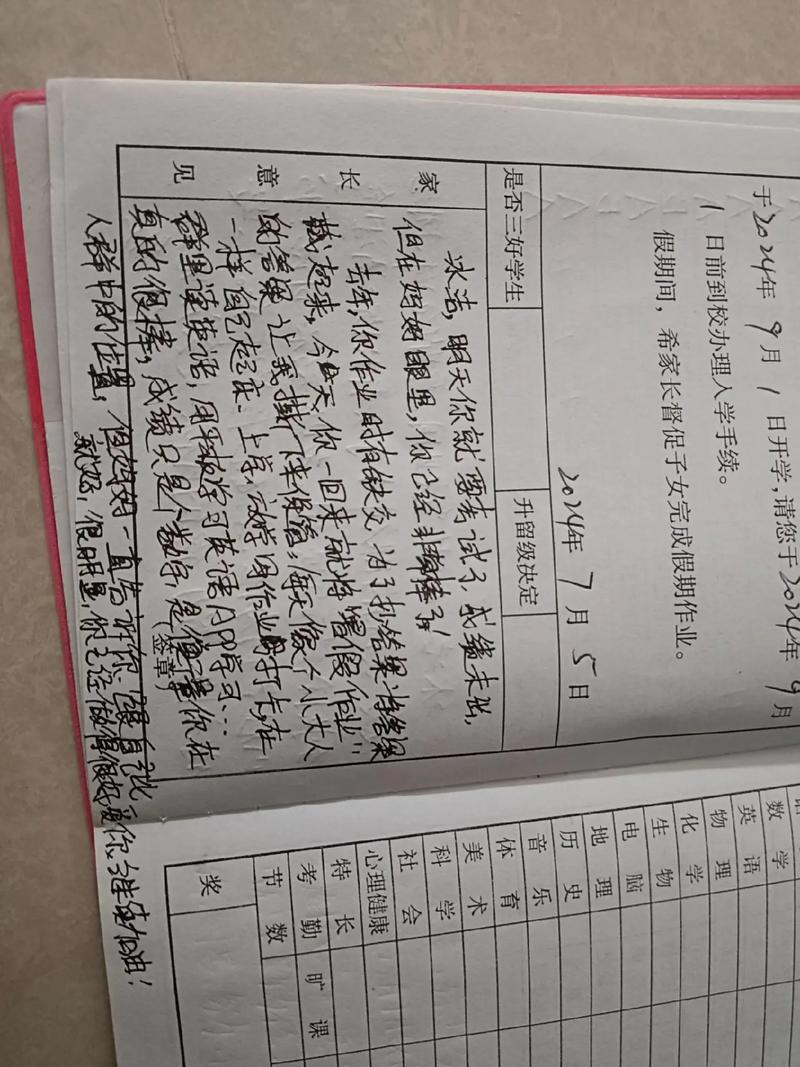 于2024年9月1日开学，请您于2024年9月
1日前到校办理入学手续。
假期间，希家长督促子女完成假期作业。
2024年7月5日
是否三好学生
升留级决定
家长意见
冰洁，明天你就要考试了，成绩未出，
但在妈妈眼里，你已经非常棒了！
去年，你作业时有缺交，为了抄答案将答案
藏起来，今天，你一回来就将"暑假作业"
的答案让我撕下来保管，每天像个小大人
一样自己起床、上学、放学用作业打卡，在
群里读英语，用平板学习英语APP学习…
真的很棒，成绩只是个数字，是你在
(签章)
人群中的位置，但妈妈一直告诉你要自己
就好，很明显，你已经做得很好，爱你，继续加油！
数学
英语
物理
化学
生物
电脑
地理
历史
音乐
体育
美术
科学
社会
心理健康
特长
考勤节数
旷课
奖